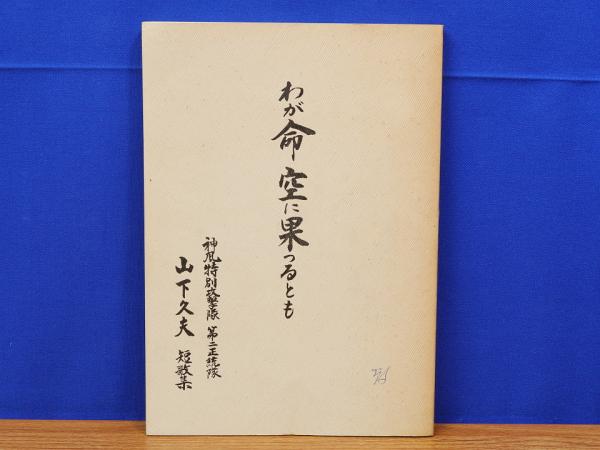 わが命空に果つるとも
神風特別攻撃隊 第二正統隊
山下久夫 短歌集